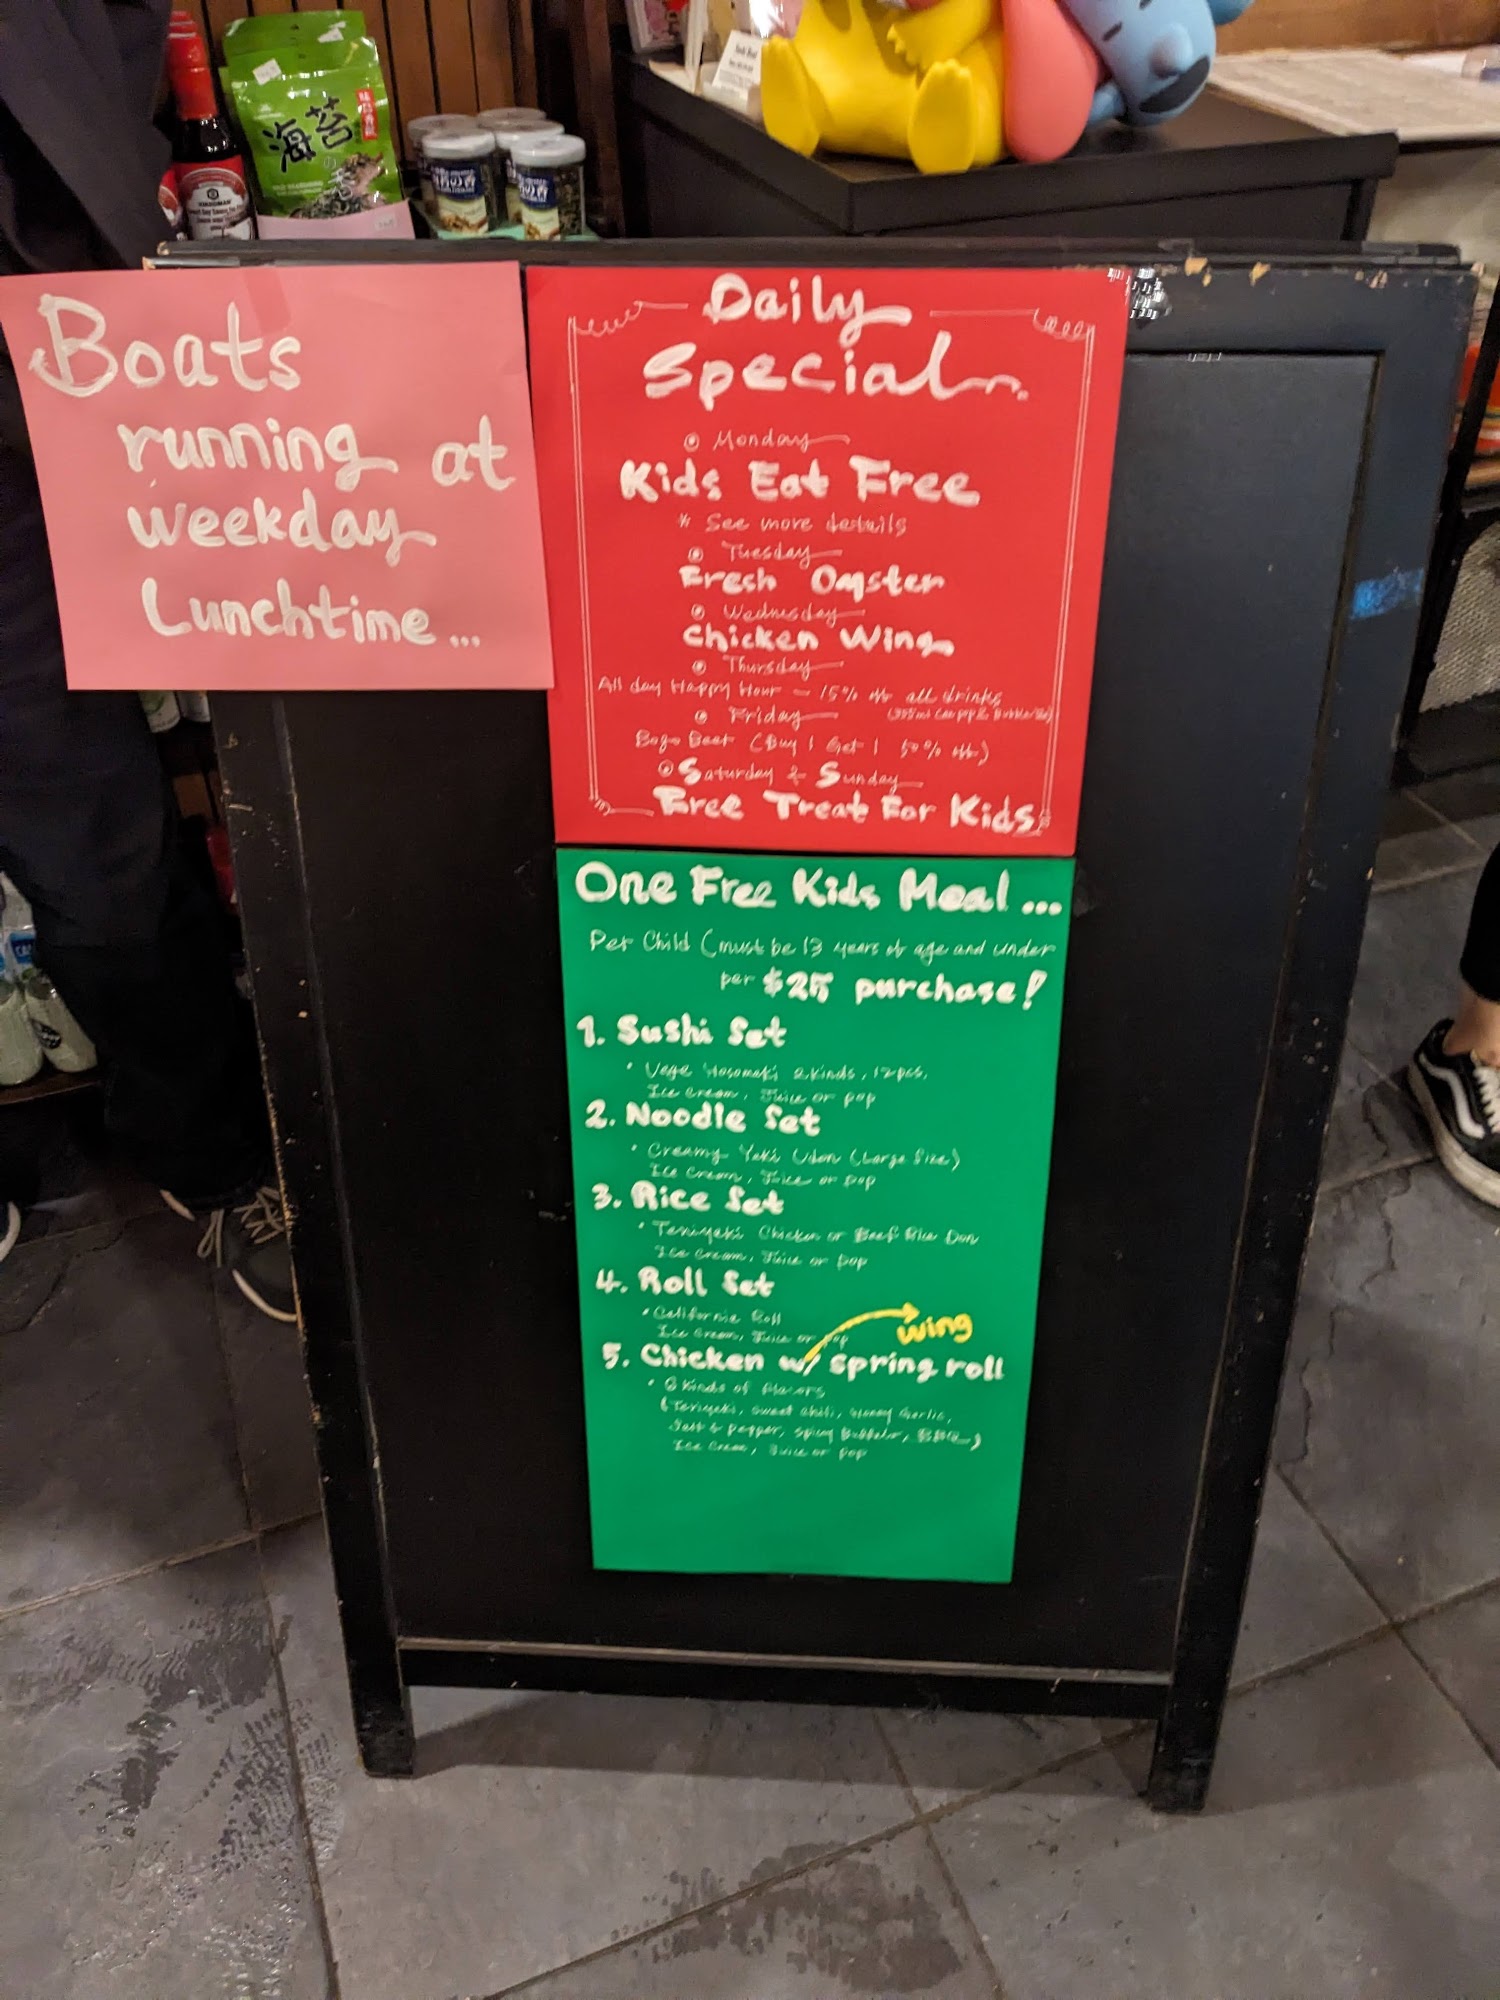 海苔
KIKKOMAN
Boats
running at
weekday
Lunchtime...
Daily
Special
Monday
Kids Eat Free
* See more details
Tuesday
Fresh Oyster
Wednesday
Chicken Wing
Thursday
All day Happy Hour - 15% off all drinks
Friday
Bogo Beer (Buy 1 Get 1 50% off)
Saturday & Sunday
Free Treat For Kids
One Free Kids Meal...
Per Child (must be 13 years of age and under
per $25 purchase!
1. Sushi Set
• Vege Hosomaki 2 kinds, 12pcs,
Ice Cream, Juice or pop
2. Noodle Set
• Creamy Yaki Udon (Large Size)
Ice Cream, Juice or pop
3. Rice Set
• Teriyaki Chicken or Beef Rice Don
Ice Cream, Juice or pop
4. Roll Set
• California Roll
Ice Cream, Juice or pop
wing
5. Chicken w/ spring roll
• 6 kinds of flavors
(Teriyaki, sweet chili, Honey Garlic,
Salt & pepper, spicy Buffalo, BBQ)
Ice Cream, Juice or pop